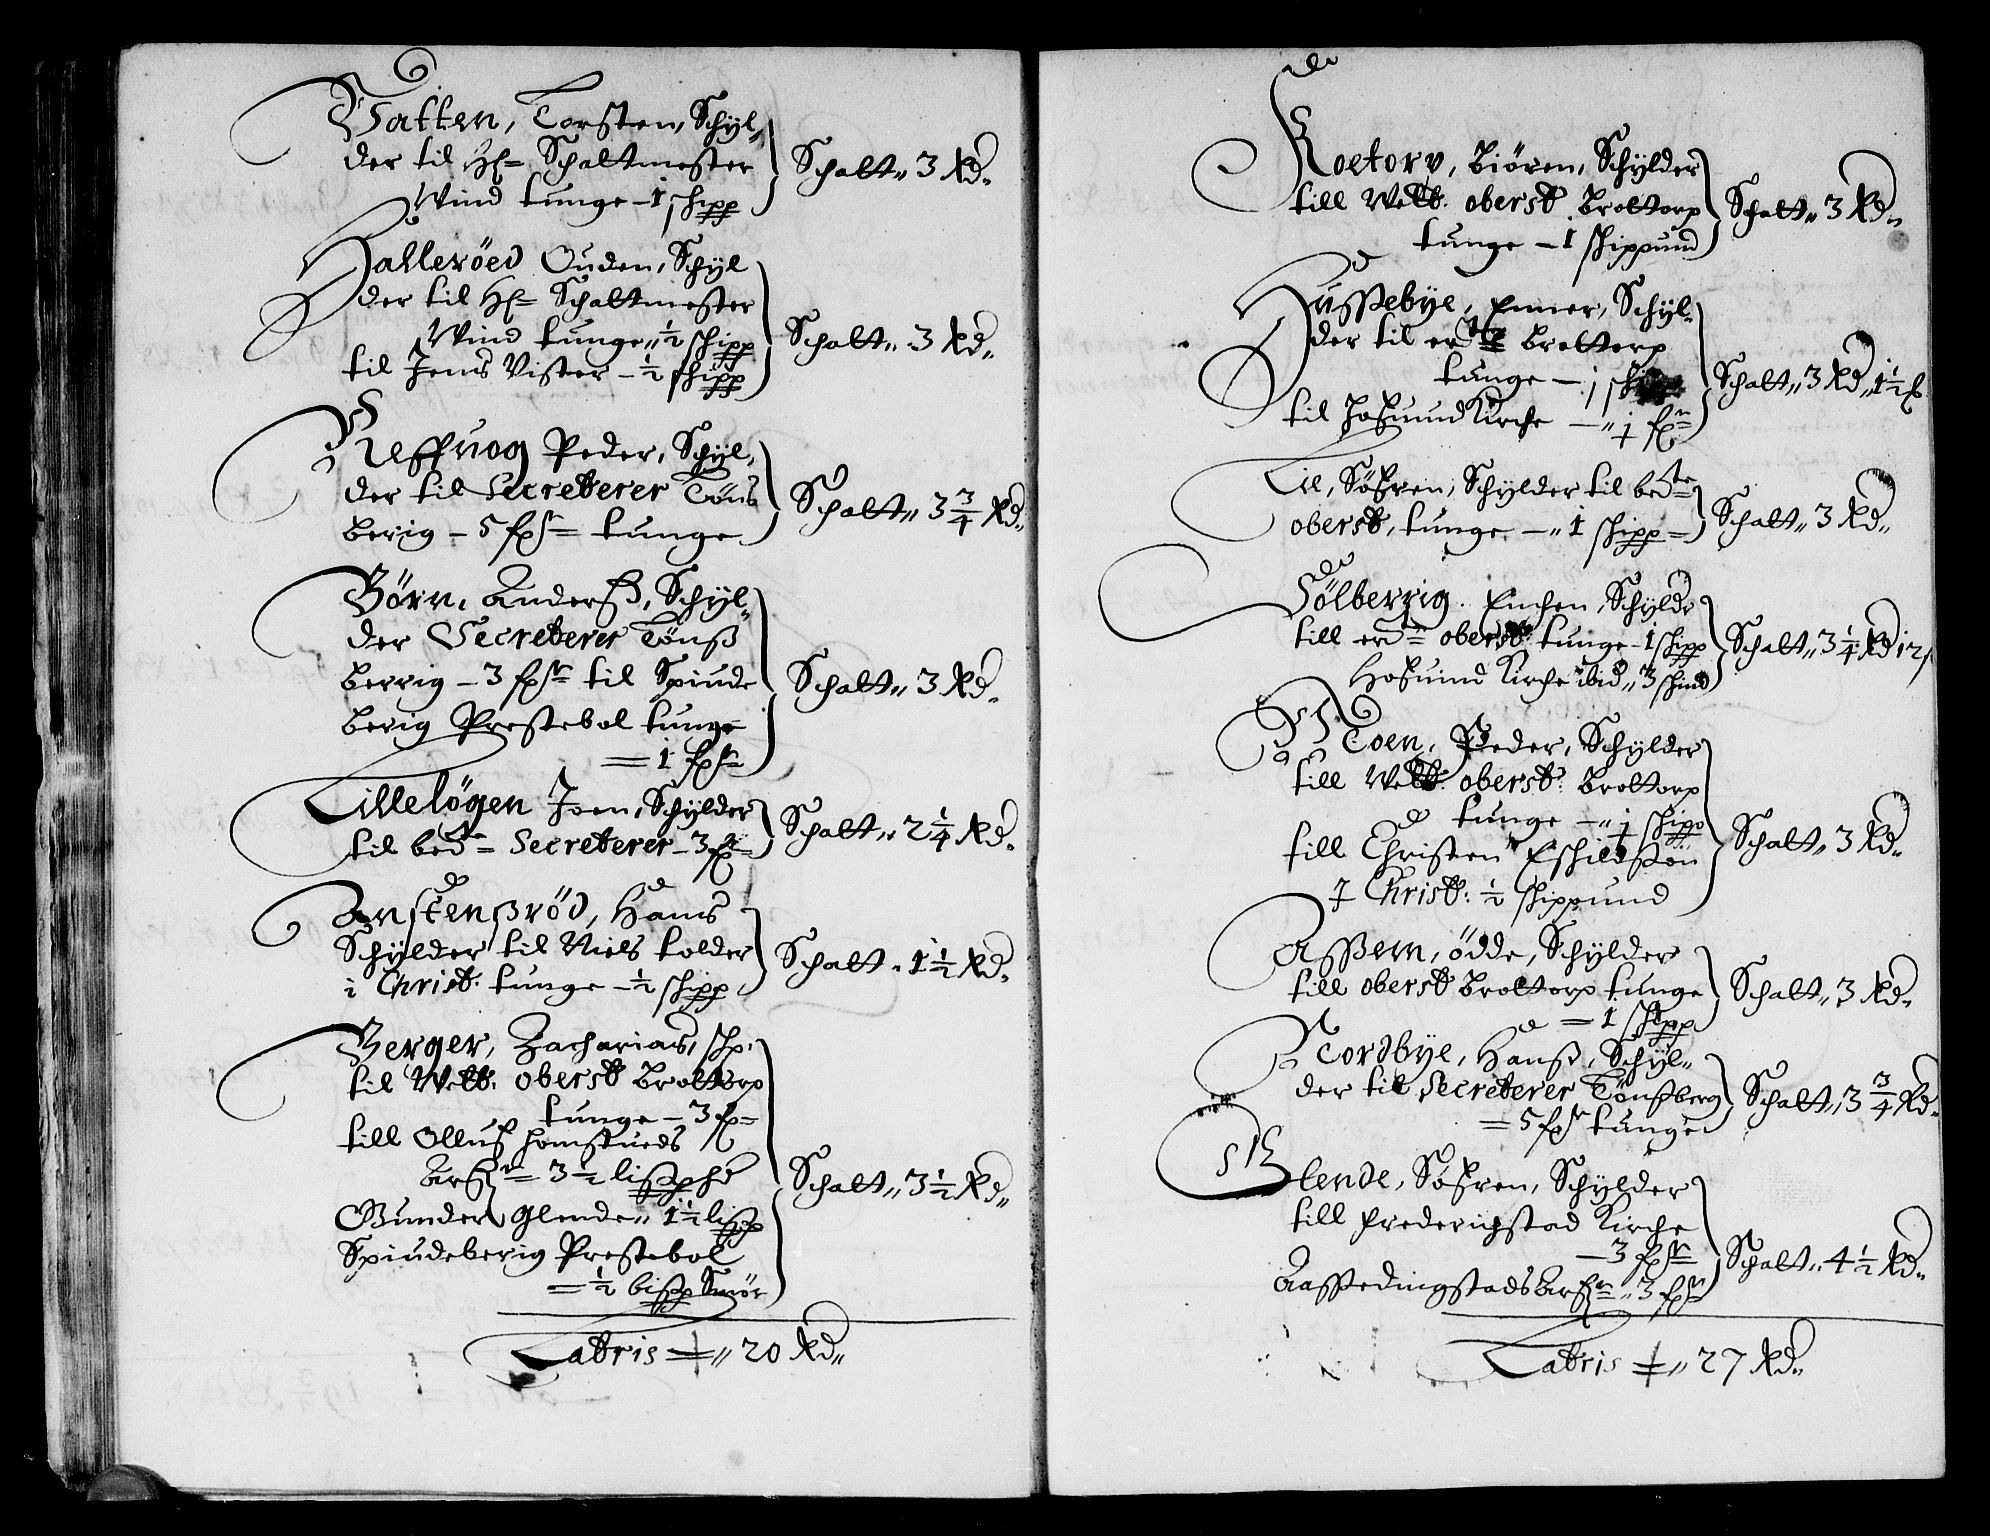 Vatten, Torsten, Schyl„
der til H: Schattmester
Wind tunge – 1 shipp
Schatt„ 3 Rd„
Halleröed Ouden, Schyl
der til H: Schattmester
Wind tunge„ ½ shipp
til Jens Vister – ½ shipp
Schatt„ 3 Rd„
Reffuog Peder, Schyl„
der til Secreterer Töns
berig – 5 fr = tunge
Schatt„ 3 ¾ Rd„
Börn, Anderß, Schyl„
der Secreterer Tönß
berrig – 3 til Spiude
berig Prestebol tunge
= 1
Schatt„ 3 Rd„
Lillelögen Joen, Schylder
til bedte Secreterer – 3
Schatt„ 2 ¼ Rd„
Anstenßröd, Hans
Schylder til Niels tolder
i Christ: tunge – ½ shipp
Schatt „ 1 ½ Rd„
Berger, Zacharias, sch.
til Welb: oberst Brottorp
tunge – 3
till Olluf homstueds
Arf: = 3 ½ lißphd
Gunder Glende„ 1 ½ lißp
Spiudeberig Prestebol
= ½ bißp Smör
Schatt„ 3 ½ Rd„
Latris = „ 20 Rd„
Roetorp, Biören, Schylder
till Welb: oberst Brottorp
tunge – 1 shippund
Schatt„ 3 Rd„
Hussebye, Enner, Schyl„
der til erbte Brottorp
tunge – j
til Hofuind Kirche – „ j
Schatt„ 3 Rd„ 1½
Lil, Söfren, Schylder til bedte
oberst, tunge – „ 1 shipp =
Schatt„ 3 Rd„
Sölberrig. Enchen, Schyldr
till oberst: tunge – 1 shipp
Hofuind Kirche ibid„ 3 shind
Schatt„ 3 ¼ Rd 12
Toen, Peder, Schylder
till Welb: oberst: Brottorp
tunge – „ j shipp
till Christen Eschildßön
I Christ: ½ shippund
Schatt„ 3 Rd„
Aßem, Ödde, Schylder
till oberst Brottorp tunge
= 1 shipp
Schatt„ 3 Rd„
Tordbye, Hanß, Schyl„
der til Secreterer Tönßberg
= 5 tunge
Schatt„ 3 ¾ Rd„
Glende, Söfren, Schylder
till Frederichstad Kirche
– 3
Aassedingstads Arf: „ 3
Schatt„ 4 ½ Rd„
Latris = „ 27 Rd„